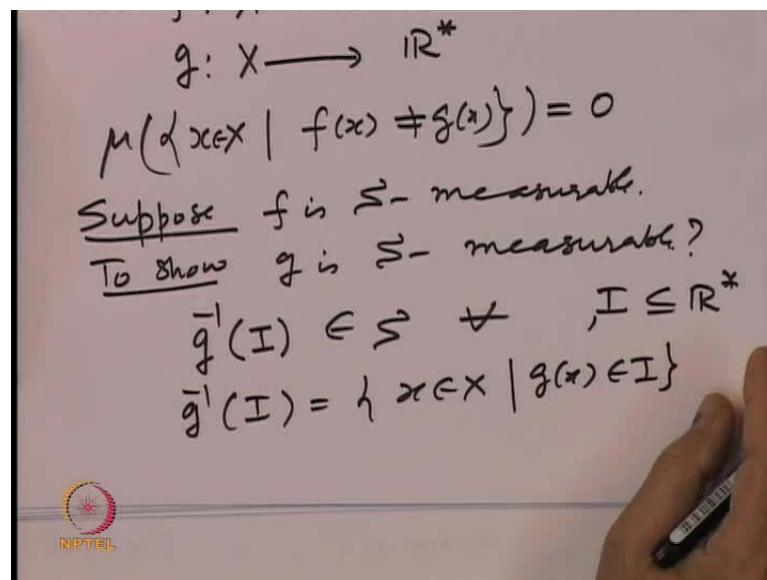 g: X ⟶ ℝ*
μ({x∈X | f(x) ≠ g(x)}) = 0
Suppose f is S- measurable.
To show g is S- measurable?
g⁻¹(I) ∈ S ∀ , I ⊆ ℝ*
g⁻¹(I) = { x∈X | g(x) ∈ I}
NPTEL